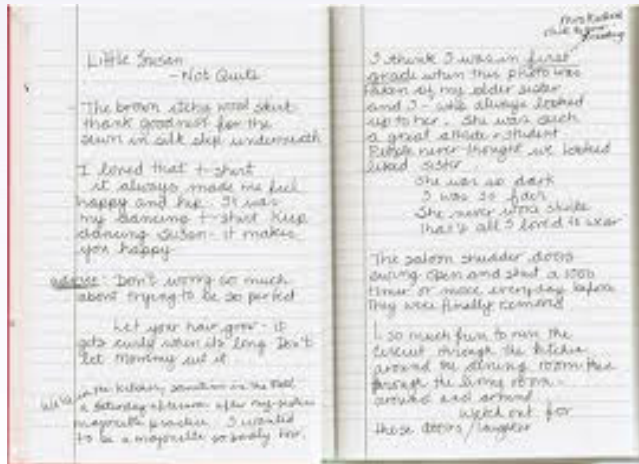 Little Susan
- Not Quite
The brown itchy wool skirt
thank goodness for the
sewn in silk slip underneath
I loved that t-shirt
it always made me feel
happy and hip. It was
my dancing t-shirt Keep
dancing Susan - it makes
you happy
advice: Don't worry so much
about trying to be so perfect
Let your hair grow - it
gets curly when its long Don't
let Mommy cut it
in the kitchen, sometime in the
a Saturday afternoon after my
majorette practice. I wanted
to be a majorette so badly too.
I think I was in first
grade when this photo was
taken of my older sister
and I - who always looked
up to her. She was such
a great athlete + student
People never thought we looked
liked sister
She was so dark
I was so fair
She never wore skirts
that's all I loved to wear
The saloon shudder doors
swing open and shut a 1000
times or more everyday before
they were finally removed
so much fun to run the
circuit through the kitchen
around the dining room then
through the living room -
around and around
Watch out for
those doors/laughter